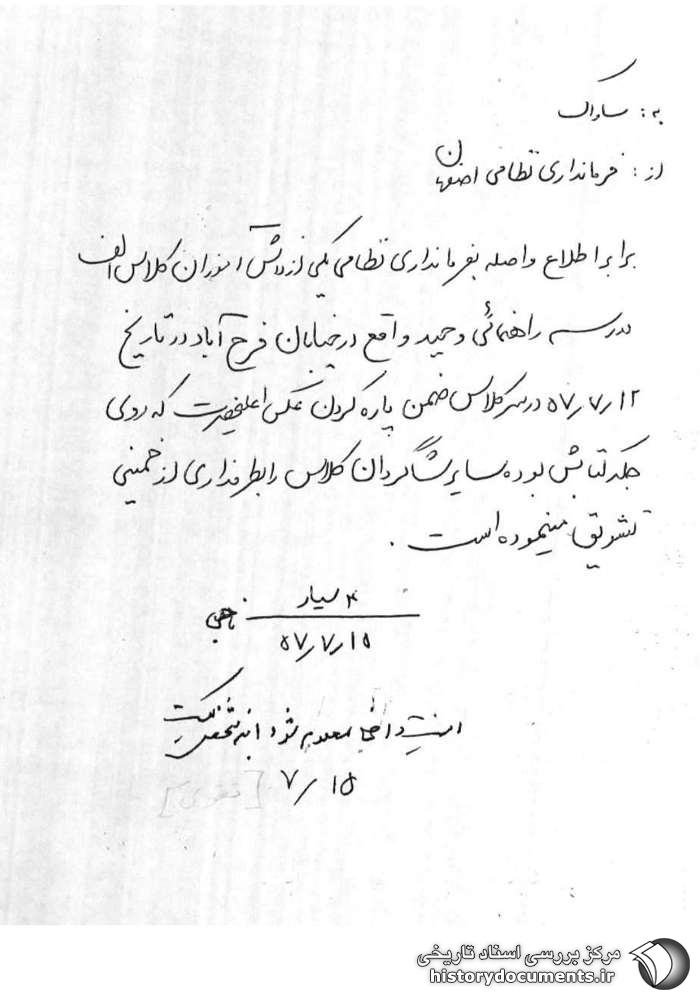 به: ساواک
از: فرمانداری نظامی اصفهان
برابر اطلاع واصله بفرمانداری نظامی یکی از دانش آموزان کلاس الف
مدرسه راهنمائی وحید واقع در خیابان فرح آباد در تاریخ
۵۷/۷/۱۲ در سر کلاس ضمن پاره کردن عکس اعلیحضرت که روی
جلد کتابش بوده سایر شاگردان کلاس را بطرفداری از خمینی
تشویق مینموده است.
۴ سیار
۵۷/۷/۱۵
امنیت داخلی معلوم شود این شخص کیست
۷/۱۵
[تقوی]
مرکز بررسی اسناد تاریخی
historydocuments.ir